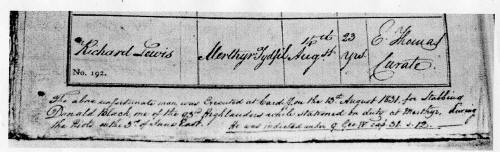 Richard Lewis Merthyr Tydfil 14th Augst. 23 Yrs E. Thomas Curate
No. 192.
The above unfortunate man was Executed at Cardiff on the 13th August 1831. for Stabbing
Donald Black, one of the 93rd Highlanders while stationed on duty at Merthyr, during
the Riots on the 3rd of June last. He was indicted under 9. Geo. IV cap. 31. s. 12.